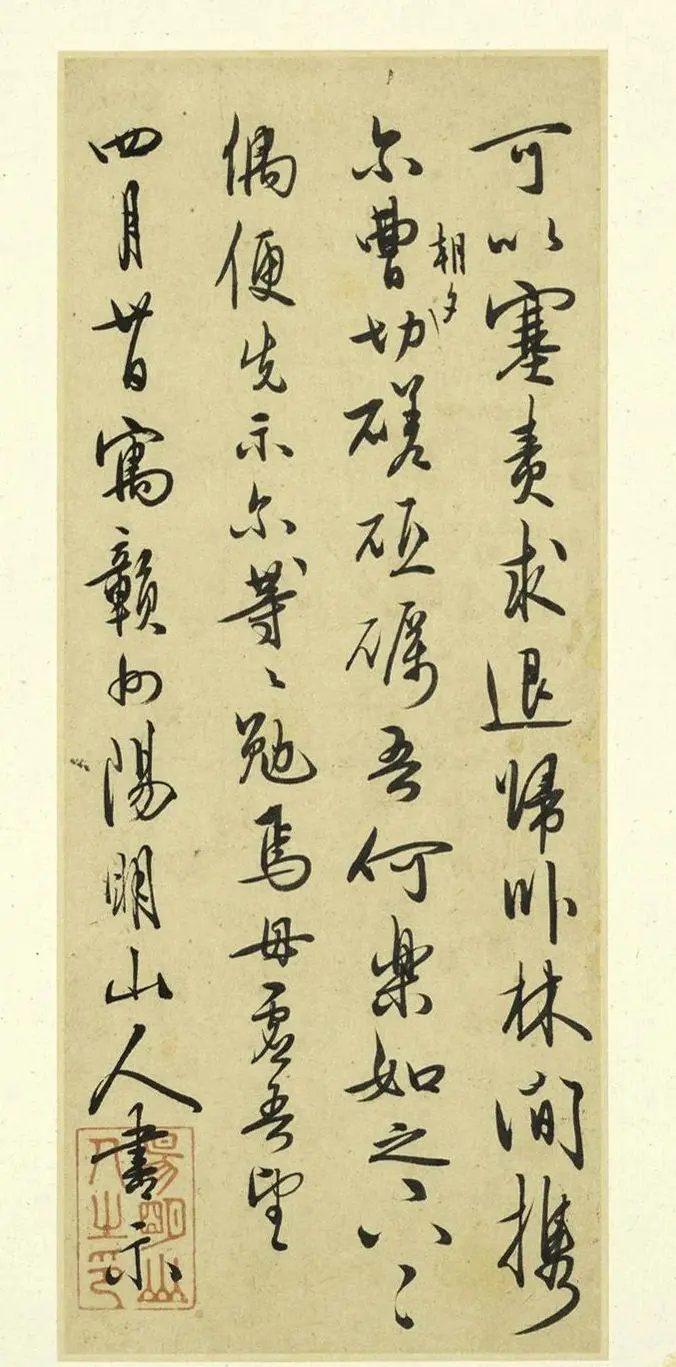 可以塞責求退歸卧林間携
尔曹朝夕切磋砥礪吾何樂如之
偶便先示尔等〻勉焉毋虚吾望
四月卅日寓贛州陽明山人書示
陽明山人之印